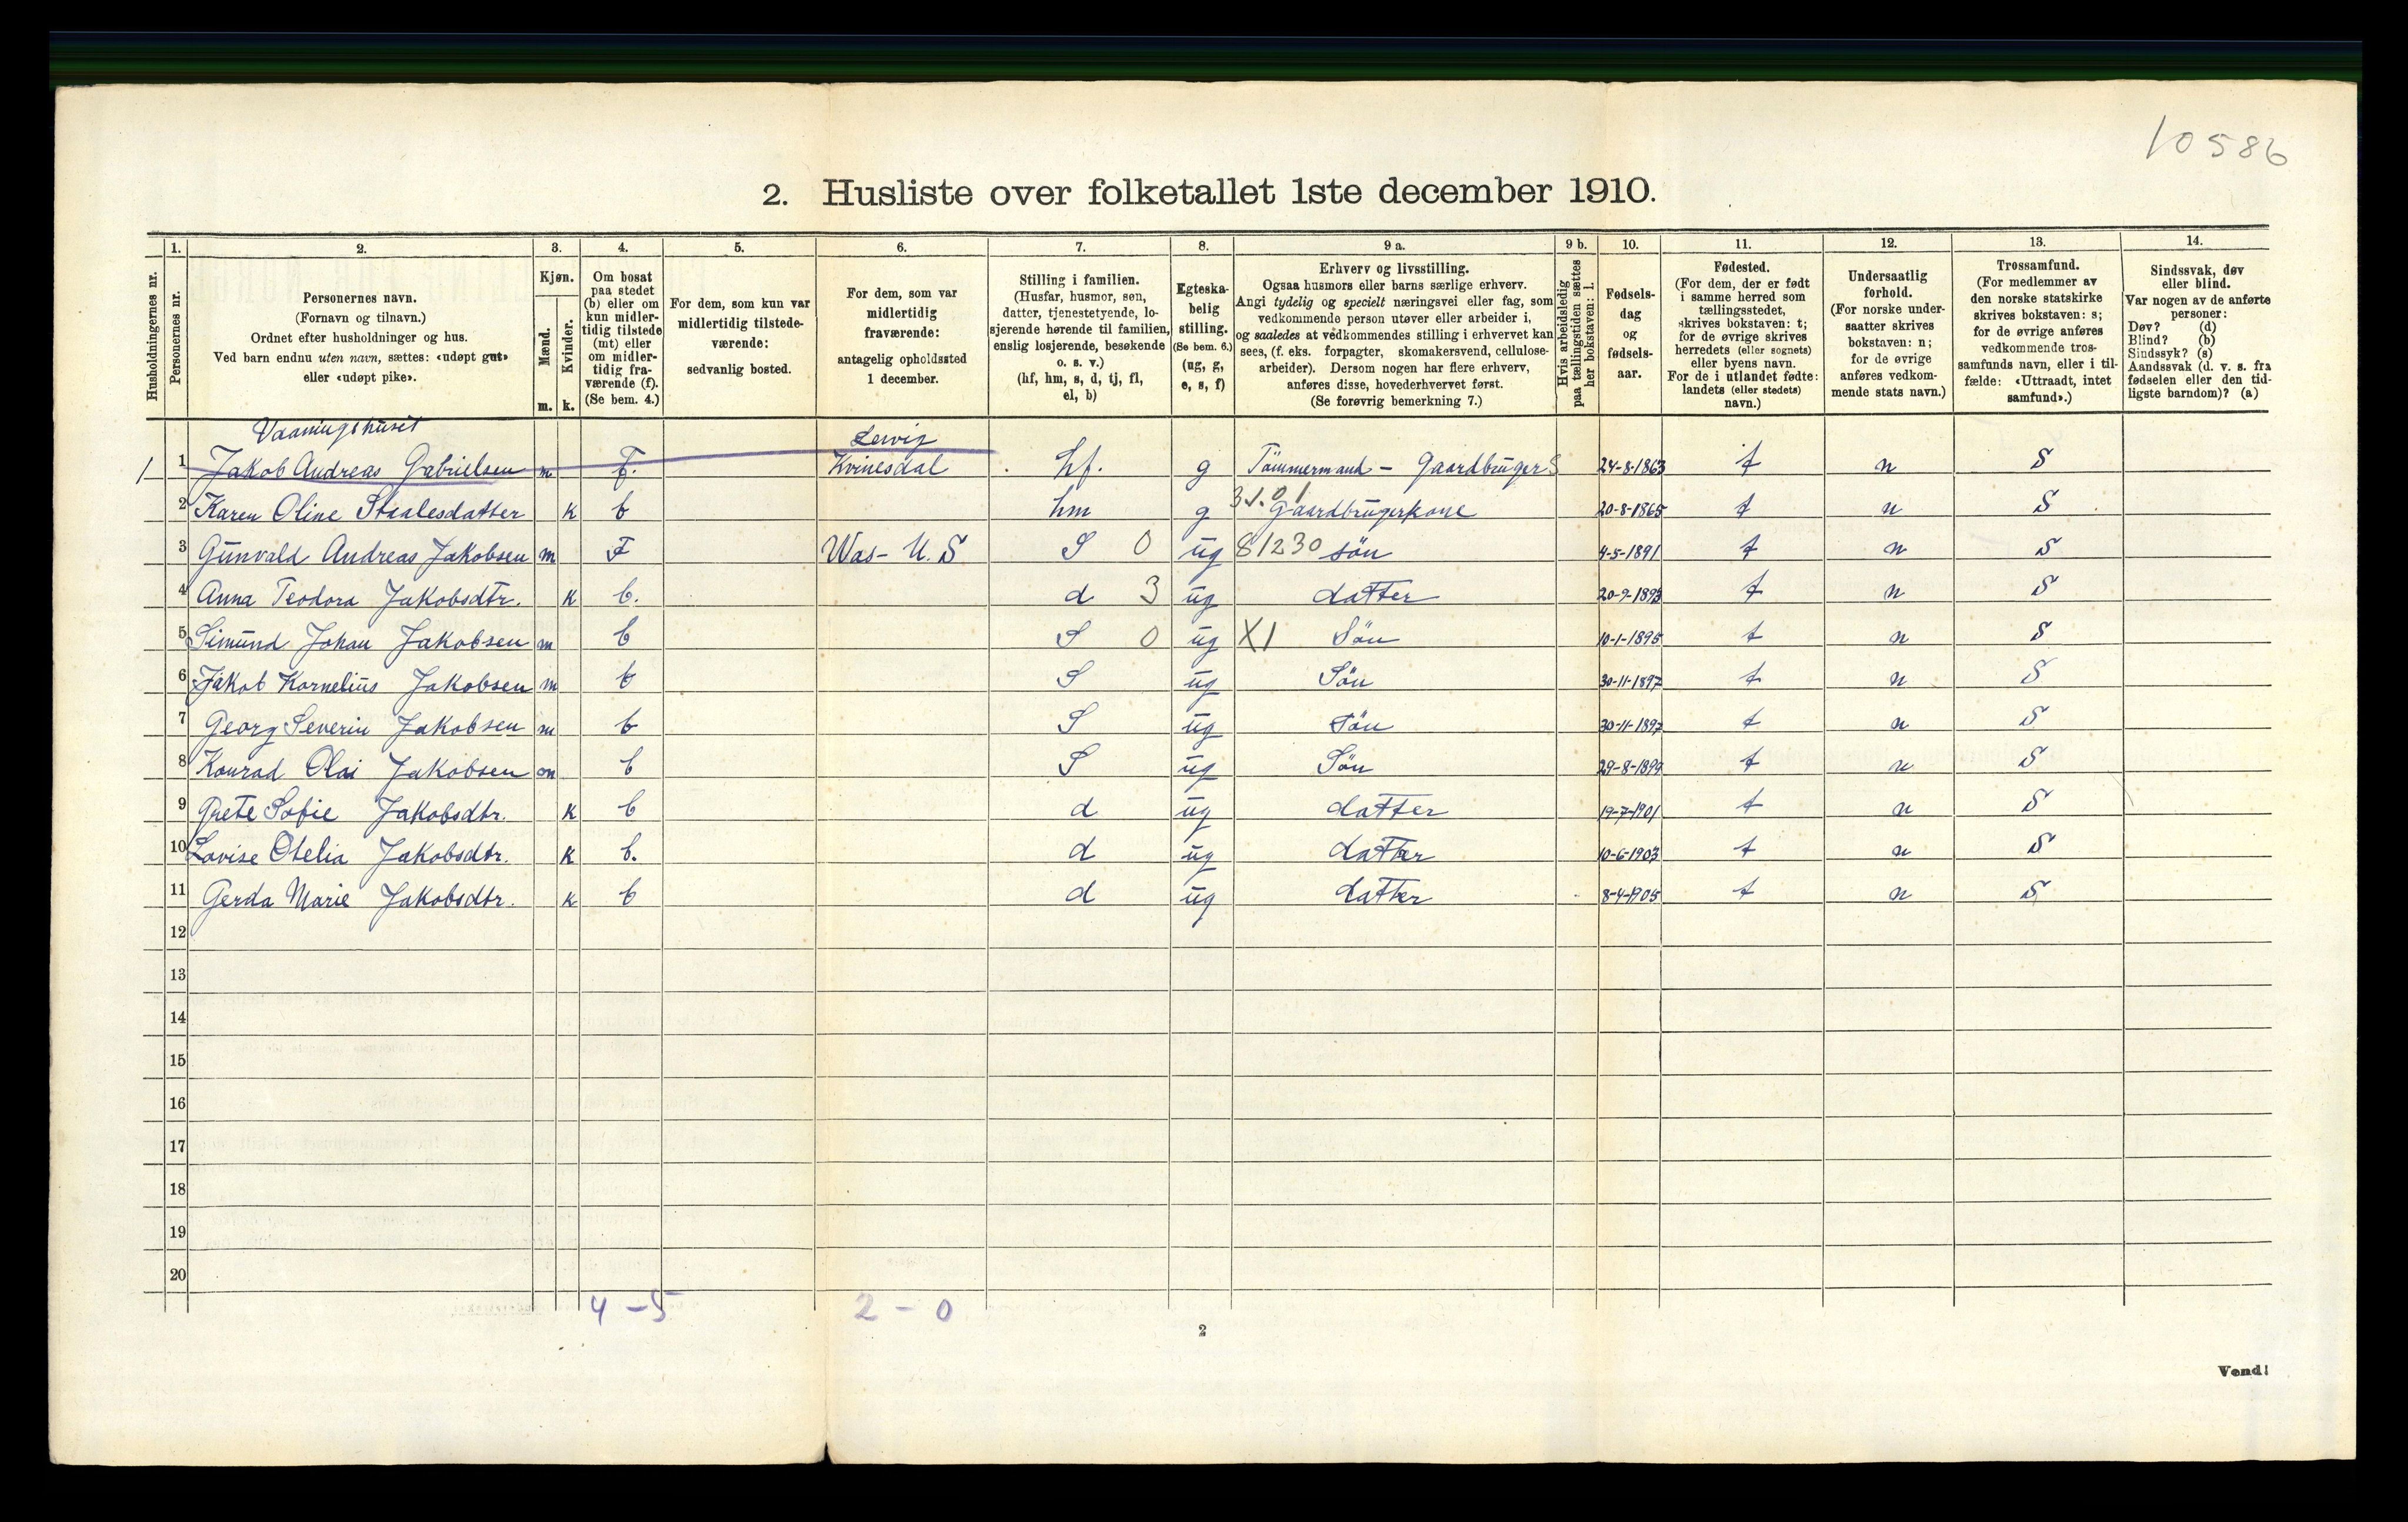 10586
2. Husliste over folketallet 1ste december 1910.
Husholdningernes nr.
1. Personernes nr.
2. Personernes navn.
(Fornavn og tilnavn.)
Ordnet efter husholdninger og hus.
Ved barn endnu uten navn, sættes: «udøpt gut»
eller «udøpt pike».
3. Kjøn.
Mænd. m.
Kvinder. k.
4. Om bosat
paa stedet
(b) eller om
kun midler-
tidig tilstede
(mt) eller
om midler-
tidig fra-
værende (f).
(Se bem. 4.)
5. For dem, som kun var
midlertidig tilstede-
værende:
sedvanlig bosted.
6. For dem, som var
midlertidig
fraværende:
antagelig opholdssted
1 december.
7. Stilling i familien.
(Husfar, husmor, søn,
datter, tjenestetyende, lo-
sjerende hørende til familien,
enslig losjerende, besøkende
o. s. v.)
(hf, hm, s, d, tj, fl,
el, b)
8. Egteska-
belig
stilling.
(Se bem. 6.)
(ug, g,
e, s, f)
9 a. Erhverv og livsstilling.
Ogsaa husmors eller barns særlige erhverv.
Angi tydelig og specielt næringsvei eller fag, som
vedkommende person utøver eller arbeider i,
og saaledes at vedkommendes stilling i erhvervet kan
sees, (f. eks. forpagter, skomakersvend, cellulose-
arbeider). Dersom nogen har flere erhverv,
anføres disse, hovederhvervet først.
(Se forøvrig bemerkning 7.)
9 b. Hvis arbeidsledig
paa tællingstiden sættes
her bokstaven: l.
10. Fødsels-
dag
og
fødsels-
aar.
11. Fødested.
(For dem, der er født
i samme herred som
tællingsstedet,
skrives bokstaven: t;
for de øvrige skrives
herredets (eller sognets)
eller byens navn.
For de i utlandet fødte:
landets (eller stedets)
navn.)
12. Undersaatlig
forhold.
(For norske under-
saatter skrives
bokstaven: n;
for de øvrige
anføres vedkom-
mende stats navn.)
13. Trossamfund.
(For medlemmer av
den norske statskirke
skrives bokstaven: s;
for de øvrige anføres
vedkommende tros-
samfunds navn, eller i til-
fælde: «Uttraadt, intet
samfund».)
14. Sindssvak, døv
eller blind.
Var nogen av de anførte
personer:
Døv? (d)
Blind? (b)
Sindssyk? (s)
Aandssvak (d. v. s. fra
fødselen eller den tid-
ligste barndom)? (a)
Vaaningshuset
1 1 Jakob Andreas Gabrielsen m F. Kvinesdal hf. g Tömmermand - Gaardbruger S 24-8-1863 t n S
2 Karen Oline Staalesdatter k b hm g Gaardbrugerkone 20-8-1865 t n S
3 Gunvald Andreas Jakobsen m F Was- U. S S 0 ug 81230 søn 4-5-1891 t n S
4 Anna Teodora Jakobsdtr. k b. d 3 ug datter 20-9-1893 t n S
5 Simund Johan Jakobsen m b S 0 ug X1 Sön 10-1-1895 t n S
6 Jakob Kornelius Jakobsen m b S ug Sön 30-11-1897 t n S
7 Georg Severin Jakobsen m b S ug Sön 30-11-1897 t n S
8 Konrad Olai Jakobsen m b S ug Sön 29-8-1899 t n S
9 Grete Sofie Jakobsdtr. k b d ug datter 19-7-1901 t n S
10 Lovise Otelia Jakobsdtr. k b. d ug datter 10-6-1903 t n S
11 Gerda Marie Jakobsdtr. k b d ug datter 8-4-1905 t n S
12
13
14
15
16
17
18
19
20
4 - 5 2 - 0
2
Vend!